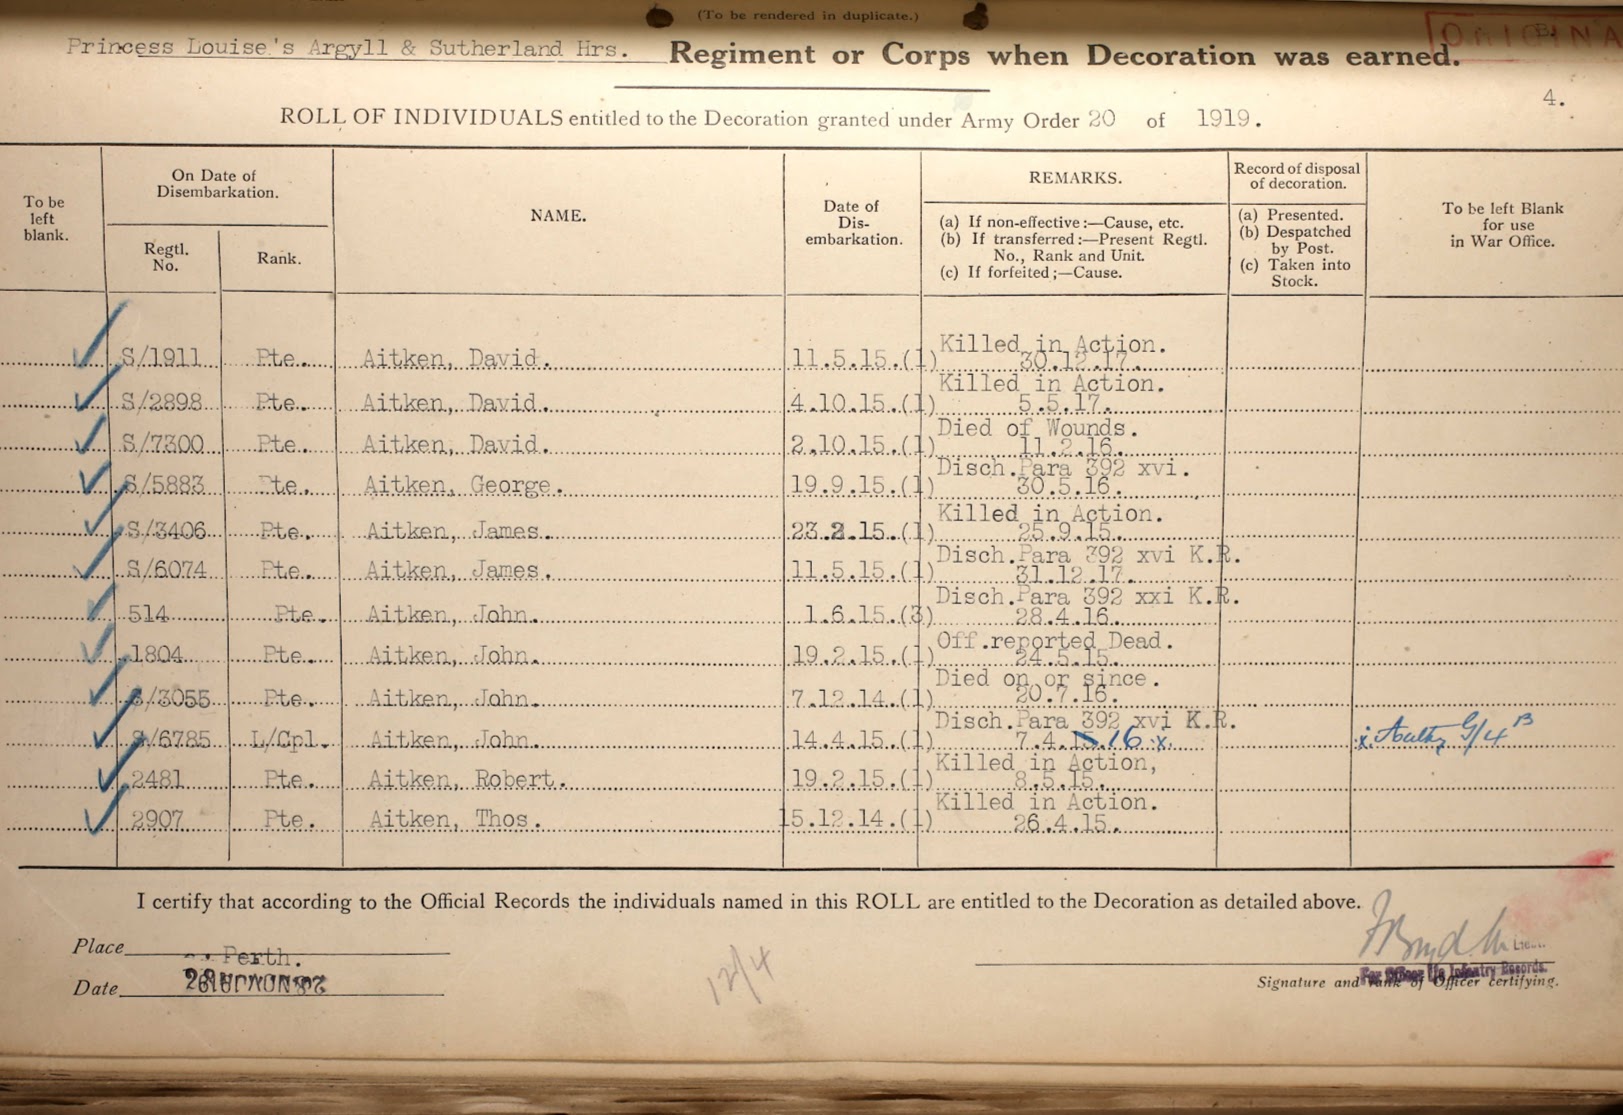 (To be rendered in duplicate.)
Princess Louise's Argyll & Sutherland Hrs. Regiment or Corps when Decoration was earned.
4.
ROLL OF INDIVIDUALS entitled to the Decoration granted under Army Order 20 of 1919.
To be left blank.
On Date of Disembarkation.
Regtl. No.
Rank.
NAME.
Date of Dis-embarkation.
REMARKS.
(a) If non-effective:—Cause, etc.
(b) If transferred:—Present Regtl. No., Rank and Unit.
(c) If forfeited;—Cause.
Record of disposal of decoration.
(a) Presented.
(b) Despatched by Post.
(c) Taken into Stock.
To be left Blank for use in War Office.
S/1911 Pte. Aitken, David. 11.5.15.(1) Killed in Action. 30.12.17.
S/2898 Pte. Aitken, David. 4.10.15.(1) Killed in Action. 5.5.17.
S/7300 Pte. Aitken, David. 2.10.15.(1) Died of Wounds. 11.2.16.
S/5883 Pte. Aitken, George. 19.9.15.(1) Disch.Para 392 xvi. 30.5.16.
S/3406 Pte. Aitken, James. 23.2.15.(1) Killed in Action. 25.9.15.
S/6074 Pte. Aitken, James. 11.5.15.(1) Disch.Para 392 xvi K.R. 31.12.17.
514 Pte. Aitken, John. 1.6.15.(3) Disch.Para 392 xxi K.R. 28.4.16.
1804 Pte. Aitken, John. 19.2.15.(1) Off.reported Dead. 24.5.15.
S/3055 Pte. Aitken, John. 7.12.14.(1) Died on or since. 20.7.16.
S/6785 L/Cpl. Aitken, John. 14.4.15.(1) Disch.Para 392 xvi K.R. 7.4.15. 16 x. x Authy G/4 B
2481 Pte. Aitken, Robert. 19.2.15.(1) Killed in Action, 8.5.15.
2907 Pte. Aitken, Thos. 15.12.14.(1) Killed in Action. 26.4.15.
I certify that according to the Official Records the individuals named in this ROLL are entitled to the Decoration as detailed above.
Place Perth.
Date
12/4
Signature and Rank of Officer certifying.